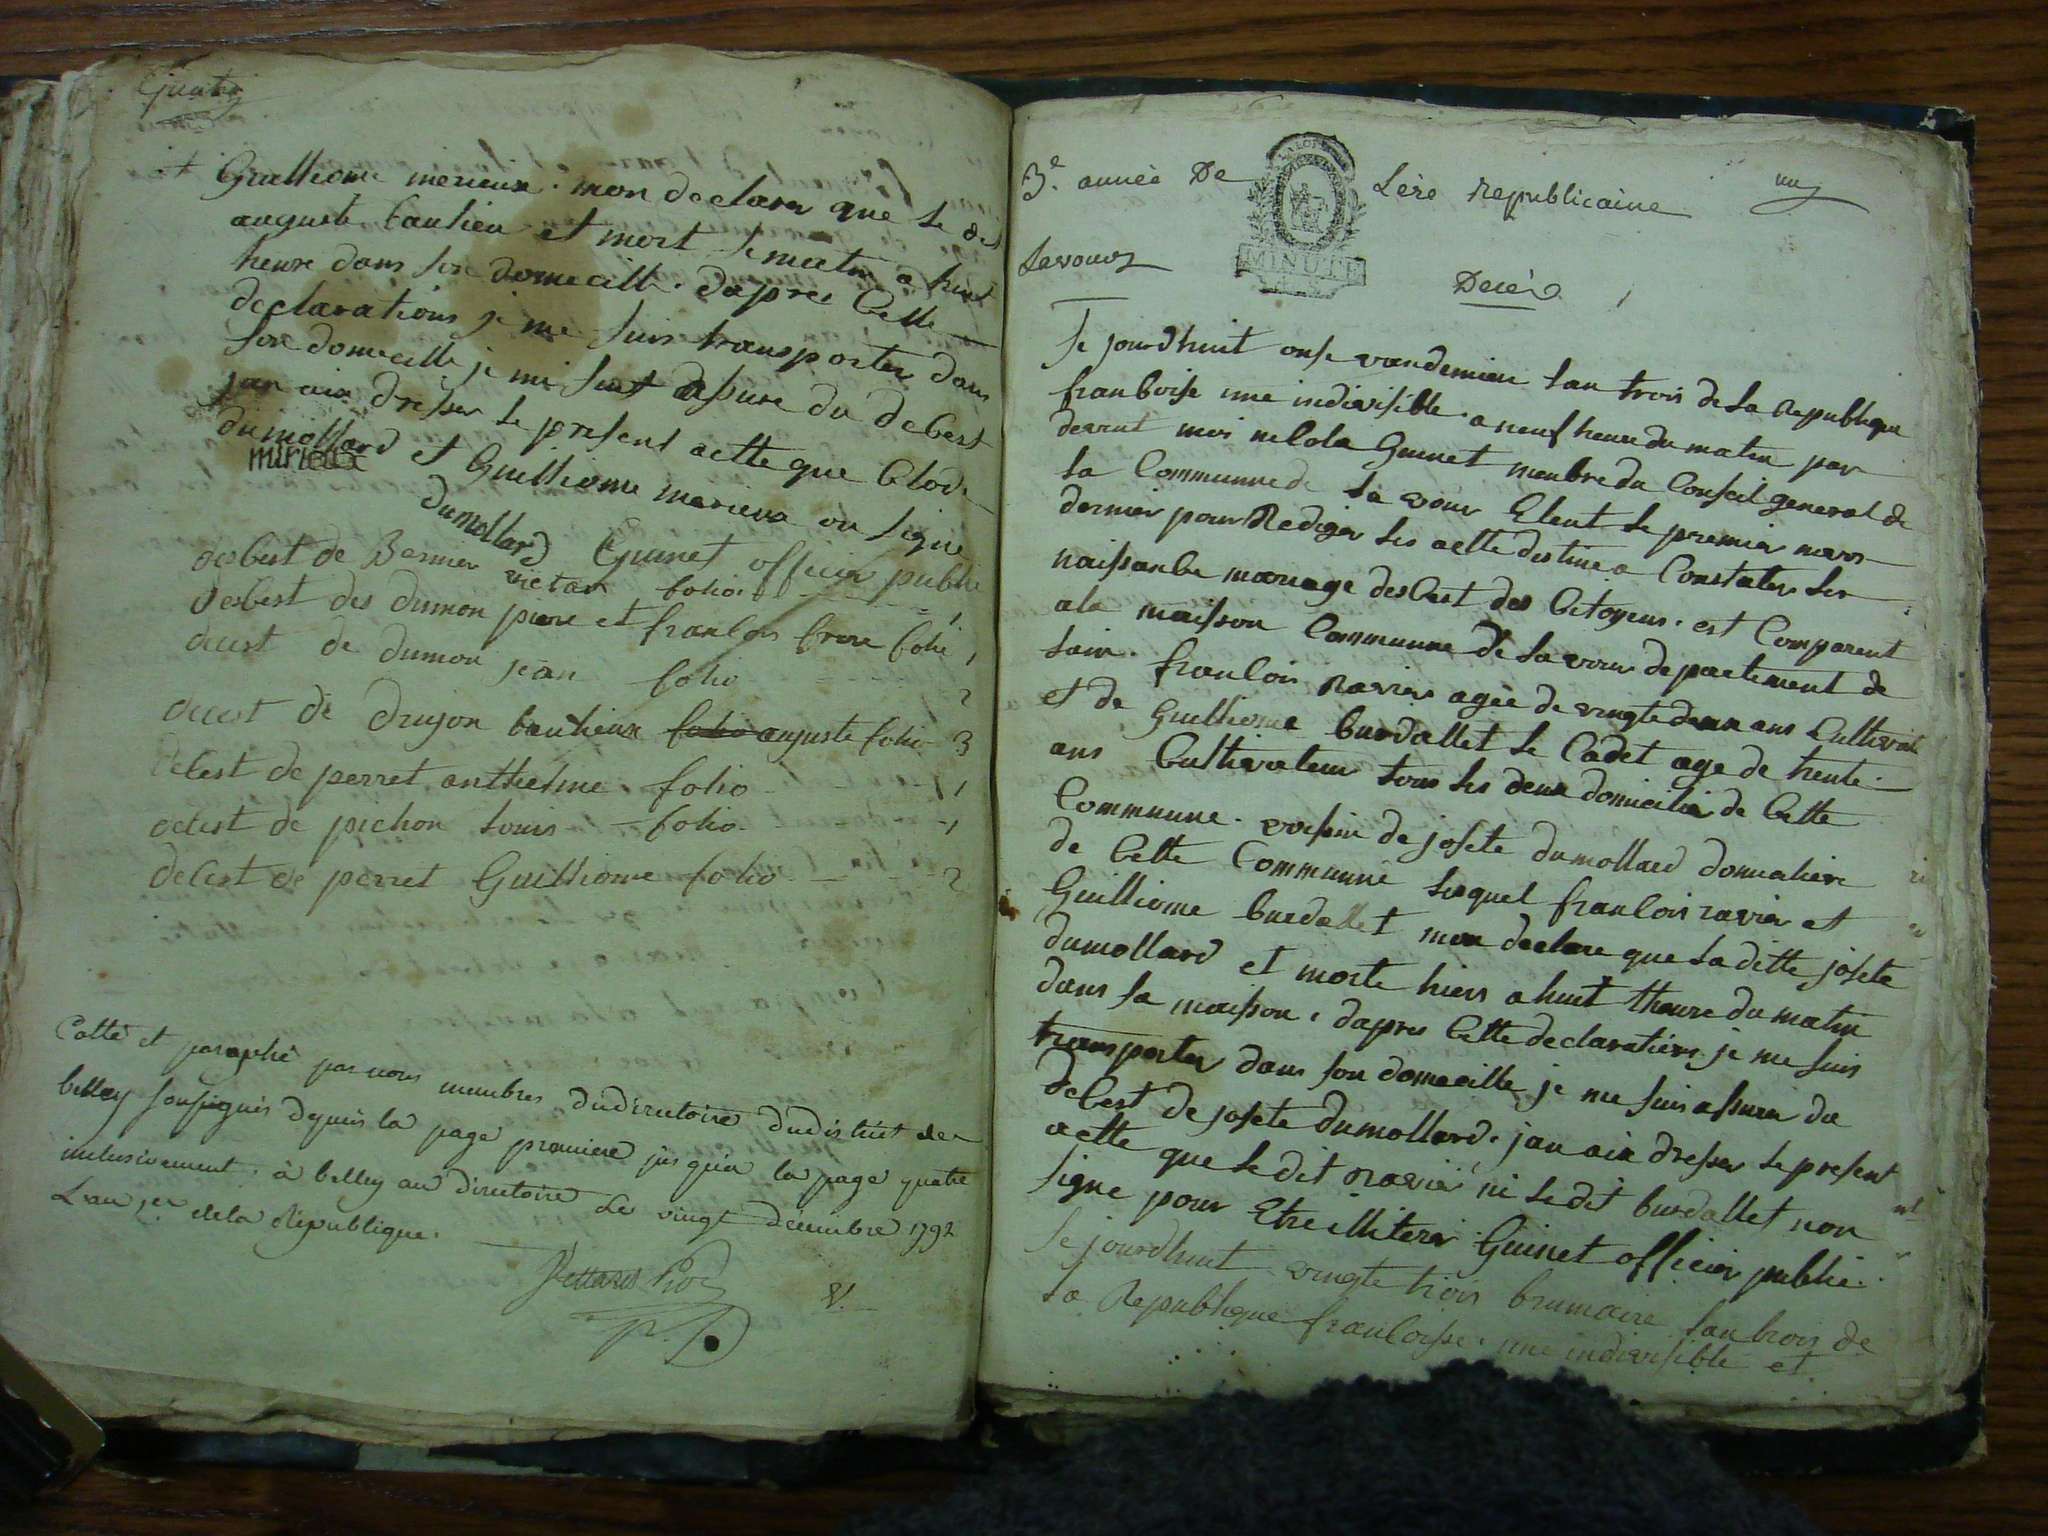 Quatre
Guilliome merieux mon declarer que le dit
auguste bautieu et mort le matin a huit
heure dans son domecille. dapres Cette
declarations je me suis transporter dans
son domecille je me suit assure du debest
jan aix dresser le present actte que Clode
dumollard et Guilliome merieux on signe
mirieux
dumollard Guinet officier public
desbest de Bernier victor folio 1
desbest des dumon piere et franlois frere folio 1
decest de dumon jean folio 2
decest de drujon bautieux auguste folio 3
decest de perret anthelme folio 1
decest de pichon louis folio 1
decest de perret Guilliome folio 2
Cotté et paraphé par nous membres du directoire du district de
belley soussignés depuis la page premiere jusqu'a la page quatre
inclusivement, à belley au directoire Le vingt décembre 1792
L'an 1er de la République.
3e. année De Lère Republicaine
MINUTE
Lavours
Decés 1
Le jourdhuit onse vandemiere lan trois de la Republique
franboise une indivisible a neuf heure du matin par
devent moi nicolas Guinet menbre du Conseil general de
la Communne de la vour Eleut le premier mars
dernier pour Rediger les actte destine a Constater les
naissanbe mariage desbest des Citoyens. est Comparent
a la maisson Communne de la vour departement de
lain. franlois ravier agée de vingte deux ans Cultivat
et de Guilliome burdallet le Cadet age de trente
ans Cultivateur tous les deux domicilié de Cette
Commune. voissin de josete dumollard domicaliere
de Cette Communne lesquel franlois ravier et
Guilliome burdallet mon declare que la ditte josete
dumollard et morte hiers a huit theure du matin
dans sa maisson, dapres Cette declarations je me suis
transporter dans son domecille je me suis assurer du
debest de josete dumollard. jan aix dresser le present
actte que le dit ravier ni le dit burdallet non
signe pour Etre illiterer Guinet officier public.
Le jourdhuit vingte trois brumaire lan trois de
la Republique franloisse. une indivisible et